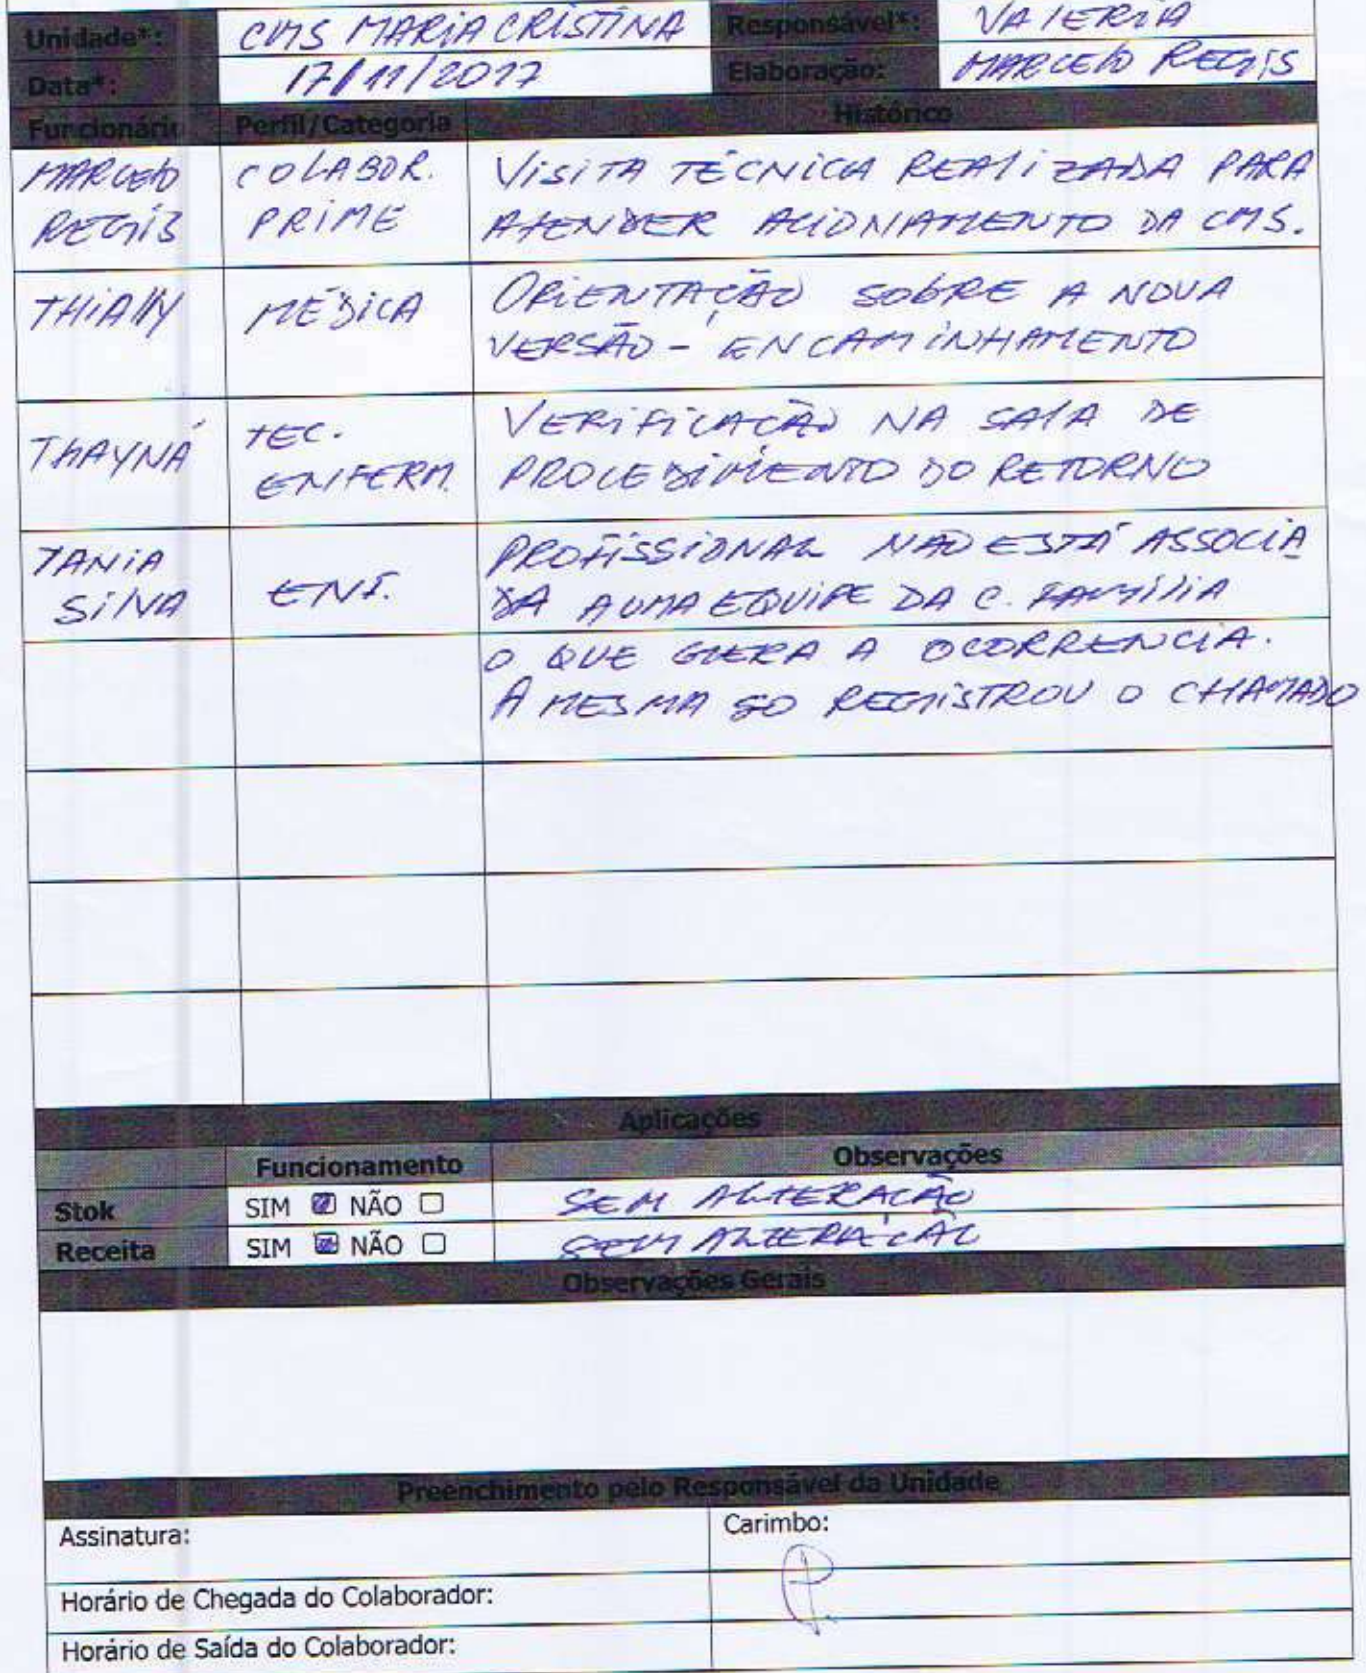 Unidade*: CMS MARIA CRISTINA Responsável*: VALERIA
Data*: 17/11/2017 Elaboração: MARCELO REGIS
Funcionário Perfil/Categoria Histórico
MARCELO COLABOR. VISITA TÉCNICA REALIZADA PARA
REGIS PRIME ATENDER ACIONAMENTO DA CMS.
THIALLY MÉDICA ORIENTAÇÃO SOBRE A NOVA
VERSÃO - ENCAMINHAMENTO
THAYNÁ TEC. VERIFICAÇÃO NA SALA DE
ENFERM. PROCEDIMENTO DO RETORNO
TANIA PROFISSIONAL NÃO ESTÁ ASSOCIA
SILVA ENF. DA A UMA EQUIPE DA C. FAMÍLIA
O QUE GERA A OCORRENCIA.
A MESMA SO REGISTROU O CHAMADO
Aplicações
Funcionamento Observações
Stok SIM NÃO SEM ALTERAÇÃO
Receita SIM NÃO SEM ALTERAÇÃO
Observações Gerais
Preenchimento pelo Responsável da Unidade
Assinatura: Carimbo:
Horário de Chegada do Colaborador:
Horário de Saída do Colaborador: